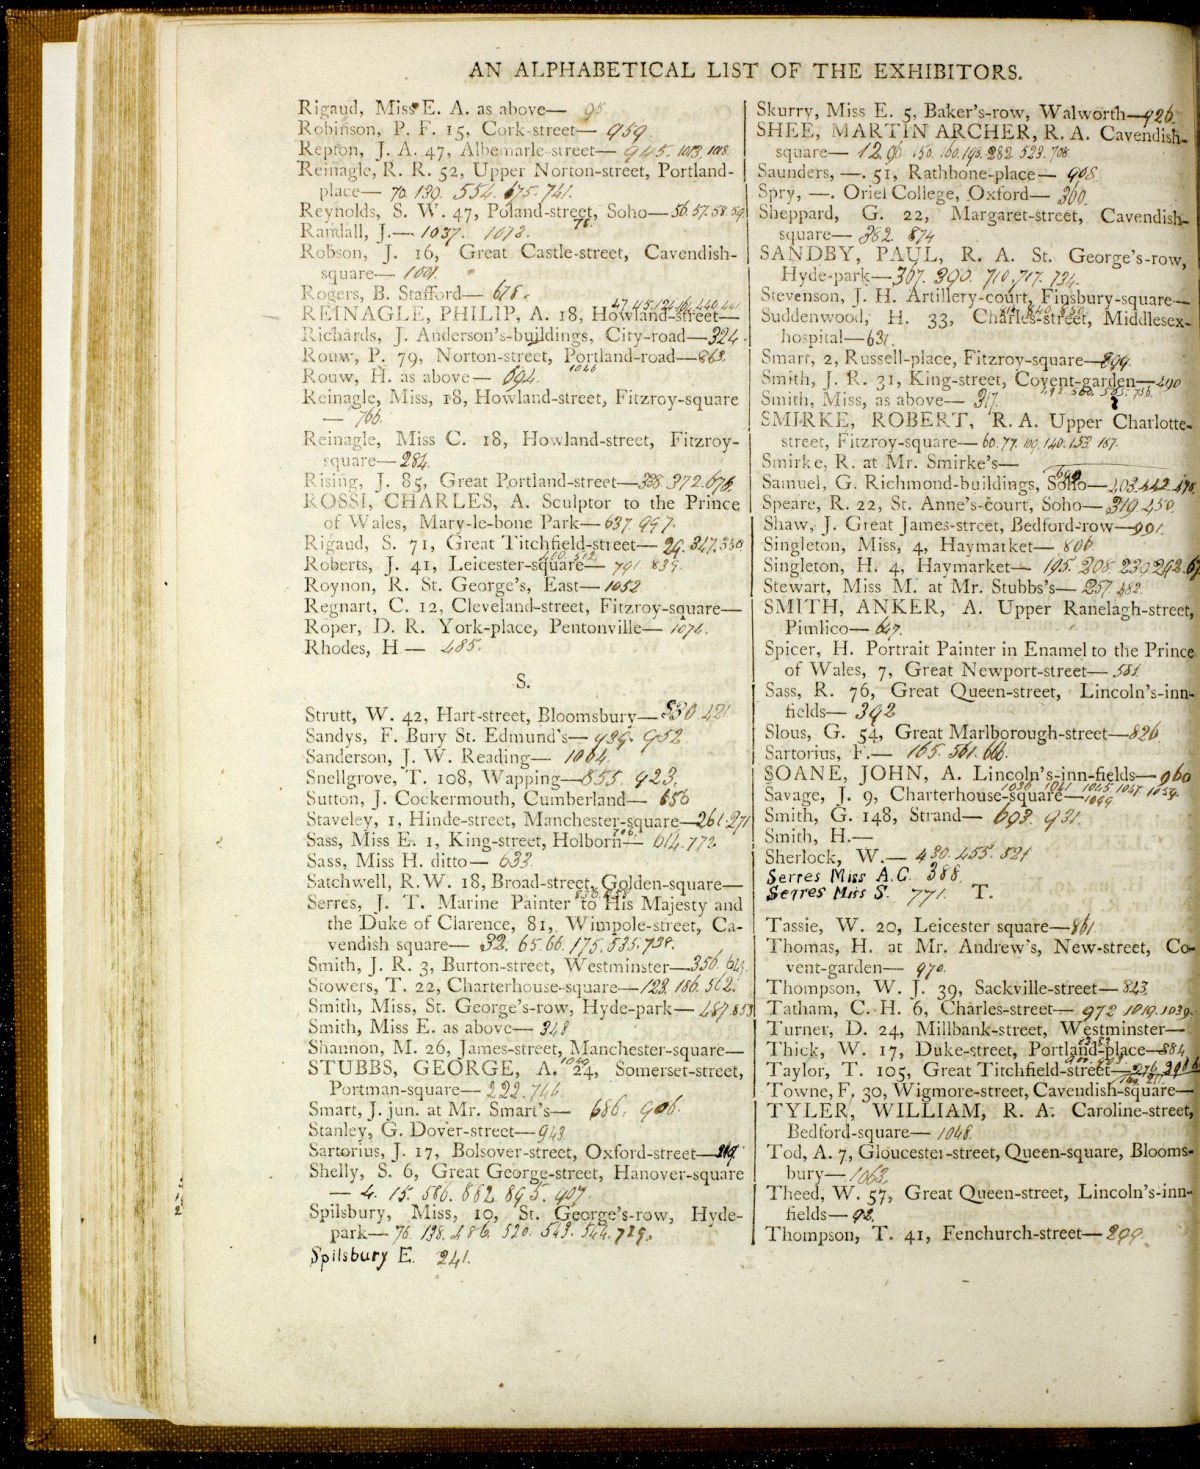 AN ALPHABETICAL LIST OF THE EXHIBITORS.
Rigaud, Miss E. A. as above— 95
Robinson, P. F. 15, Cork-street— 959.
Repton, J. A. 47, Albemarle-street— 945. 1013.
Reinagle, R. R. 52, Upper Norton-street, Portland-
place— 70. 130. 554. 675. 741.
Reynolds, S. W. 47, Poland-street, Soho— 56. 57. 58. 59
Randall, J.— 1037. 1073.
Robson, J. 16, Great Castle-street, Cavendish-
square— 1001.
Rogers, B. Stafford— 678.
REINAGLE, PHILIP, A. 18, Howland-street—
Richards, J. Anderson's-buildings, City-road— 324.
Rouw, P. 79, Norton-street, Portland-road— 863.
Rouw, H. as above— 894. 1046
Reinagle, Miss, 18, Howland-street, Fitzroy-square
— 766.
Reinagle, Miss C. 18, Howland-street, Fitzroy-
square— 284.
Rising, J. 85, Great Portland-street— 338. 372. 676.
ROSSI, CHARLES, A. Sculptor to the Prince
of Wales, Mary-le-bone Park— 637. 997.
Rigaud, S. 71, Great Titchfield-street— 29. 347. 350
Roberts, J. 41, Leicester-square— 791. 839.
Roynon, R. St. George's, East— 1052
Regnart, C. 12, Cleveland-street, Fitzroy-square—
Roper, D. R. York-place, Pentonville— 1074.
Rhodes, H— 485.
S.
Strutt, W. 42, Hart-street, Bloomsbury— 330. 421
Sandys, F. Bury St. Edmund's— 939. 952
Sanderson, J. W. Reading— 1064.
Snellgrove, T. 108, Wapping— 855. 923.
Sutton, J. Cockermouth, Cumberland— 656
Staveley, 1, Hinde-street, Manchester-square— 261. 271
Sass, Miss E. 1, King-street, Holborn— 614. 772
Sass, Miss H. ditto— 633.
Satchwell, R. W. 18, Broad-street, Golden-square—
Serres, J. T. Marine Painter to His Majesty and
the Duke of Clarence, 81, Wimpole-street, Ca-
vendish square— 32. 65. 66. 175. 535. 738.
Smith, J. R. 3, Burton-street, Westminster— 356.
Stowers, T. 22, Charterhouse-square— 123. 186. 562.
Smith, Miss, St. George's-row, Hyde-park— 487. 853
Smith, Miss E. as above— 348
Shannon, M. 26, James-street, Manchester-square—
STUBBS, GEORGE, A. 24, Somerset-street,
Portman-square— 222. 746.
Smart, J. jun. at Mr. Smart's— 686. 906.
Stanley, G. Dover-street— 943
Sartorius, J. 17, Bolsover-street, Oxford-street— 219.
Shelly, S. 6, Great George-street, Hanover-square
— 4. 15. 586. 882. 895. 907.
Spilsbury, Miss, 10, St. George's-row, Hyde-
park— 76. 138. 486. 520. 543. 544. 729.
Spilsbury E. 241.
Skurry, Miss E. 5, Baker's-row, Walworth— 926.
SHEE, MARTIN ARCHER, R. A. Cavendish-
square— 12. 96. 150. 160. 196. 282. 523. 708
Saunders, —. 51, Rathbone-place— 908.
Spry, —. Oriel College, Oxford— 360.
Sheppard, G. 22, Margaret-street, Cavendish-
square— 382. 874
SANDBY, PAUL, R. A. St. George's-row,
Hyde-park— 367. 390. 710. 717. 734.
Stevenson, J. H. Artillery-court, Finsbury-square—
Suddenwood, H. 33, Charles-street, Middlesex-
hospital— 631.
Smart, 2, Russell-place, Fitzroy-square— 899.
Smith, J. R. 31, King-street, Covent-garden— 490
Smith, Miss, as above— 317.
SMIRKE, ROBERT, R. A. Upper Charlotte-
street, Fitzroy-square— 60. 77. 109. 140. 153. 167.
Smirke, R. at Mr. Smirke's—
Samuel, G. Richmond-buildings, Soho— 403. 442. 478.
Speare, R. 22, St. Anne's-court, Soho— 319. 450.
Shaw, J. Great James-street, Bedford-row— 991.
Singleton, Miss, 4, Haymarket— 806
Singleton, H. 4, Haymarket— 195. 208. 230 292.
Stewart, Miss M. at Mr. Stubbs's— 257. 482.
SMITH, ANKER, A. Upper Ranelagh-street,
Pimlico— 647.
Spicer, H. Portrait Painter in Enamel to the Prince
of Wales, 7, Great Newport-street— 581
Sass, R. 76, Great Queen-street, Lincoln's-inn-
fields— 392
Slous, G. 54, Great Marlborough-street— 826.
Sartorius, F.— 165. 561. 666.
SOANE, JOHN, A. Lincoln's-inn-fields— 960
Savage, J. 9, Charterhouse-square—
Smith, G. 148, Strand— 693. 931.
Smith, H.—
Sherlock, W.— 430. 455. 521
Serres Miss A.C. 388.
Serres Miss S. 771.
T.
Tassie, W. 20, Leicester square— 861.
Thomas, H. at Mr. Andrew's, New-street, Co-
vent-garden— 970.
Thompson, W. J. 39, Sackville-street— 843
Tatham, C. H. 6, Charles-street— 972 1019. 1039.
Turner, D. 24, Millbank-street, Westminster—
Thick, W. 17, Duke-street, Portland-place— 884
Taylor, T. 105, Great Titchfield-street—
Towne, F. 30, Wigmore-street, Cavendish-square—
TYLER, WILLIAM, R. A. Caroline-street,
Bedford-square— 1048.
Tod, A. 7, Gloucester-street, Queen-square, Blooms-
bury— 1063.
Theed, W. 57, Great Queen-street, Lincoln's-inn-
fields— 92.
Thompson, T. 41, Fenchurch-street— 299.